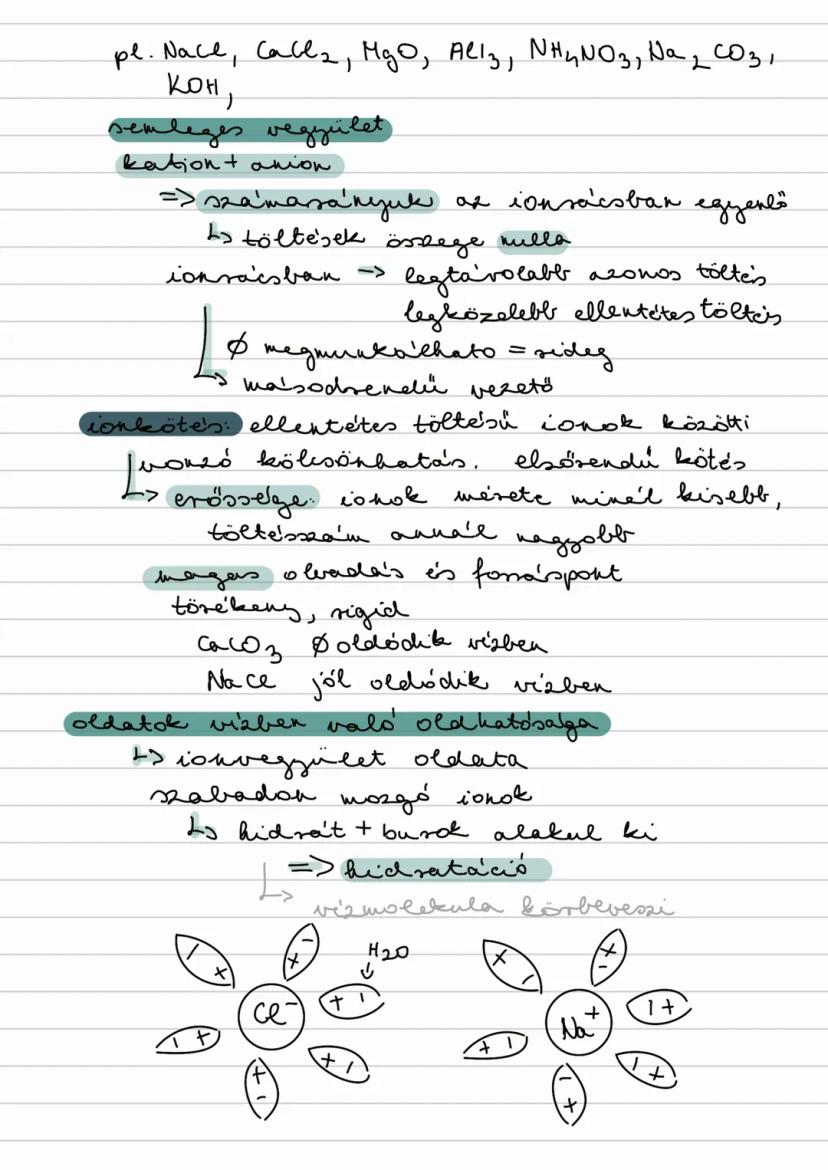 pl. NaCl, CaCl2, MgO, AlI3, NH4NO3, Na2CO3,
KOH,
semleges vegyület
kation + anion
=> számarányuk az ionrácsban egyenlő
↳ töltések összege nulla
ionrácsban -> legtávolabb azonos töltés
legközelebb ellentétes töltés
Ø megmunkálható = rideg
↳ másodrendű vezető
ionkötés: ellentétes töltésű ionok közötti
vonzó kölcsönhatás. elsőrendű kötés
↳ erőssége: ionok mérete minél kisebb,
töltésszám annál nagyobb
magas olvadás és forráspont
törékeny, rigid
CaCO3 Ø oldódik vízben
NaCl jól oldódik vízben
oldatok vízben való oldhatósága
↳ ionvegyület oldata
szabadon mozgó ionok
↳ hidrát + burok alakul ki
=> hidratáció
↳ vízmolekula körbeveszi
- +
- +
H2O
+ -
Cl-
- +
+ -
+ -
+ -
+ -
- +
Na+
+ -
- +
- +